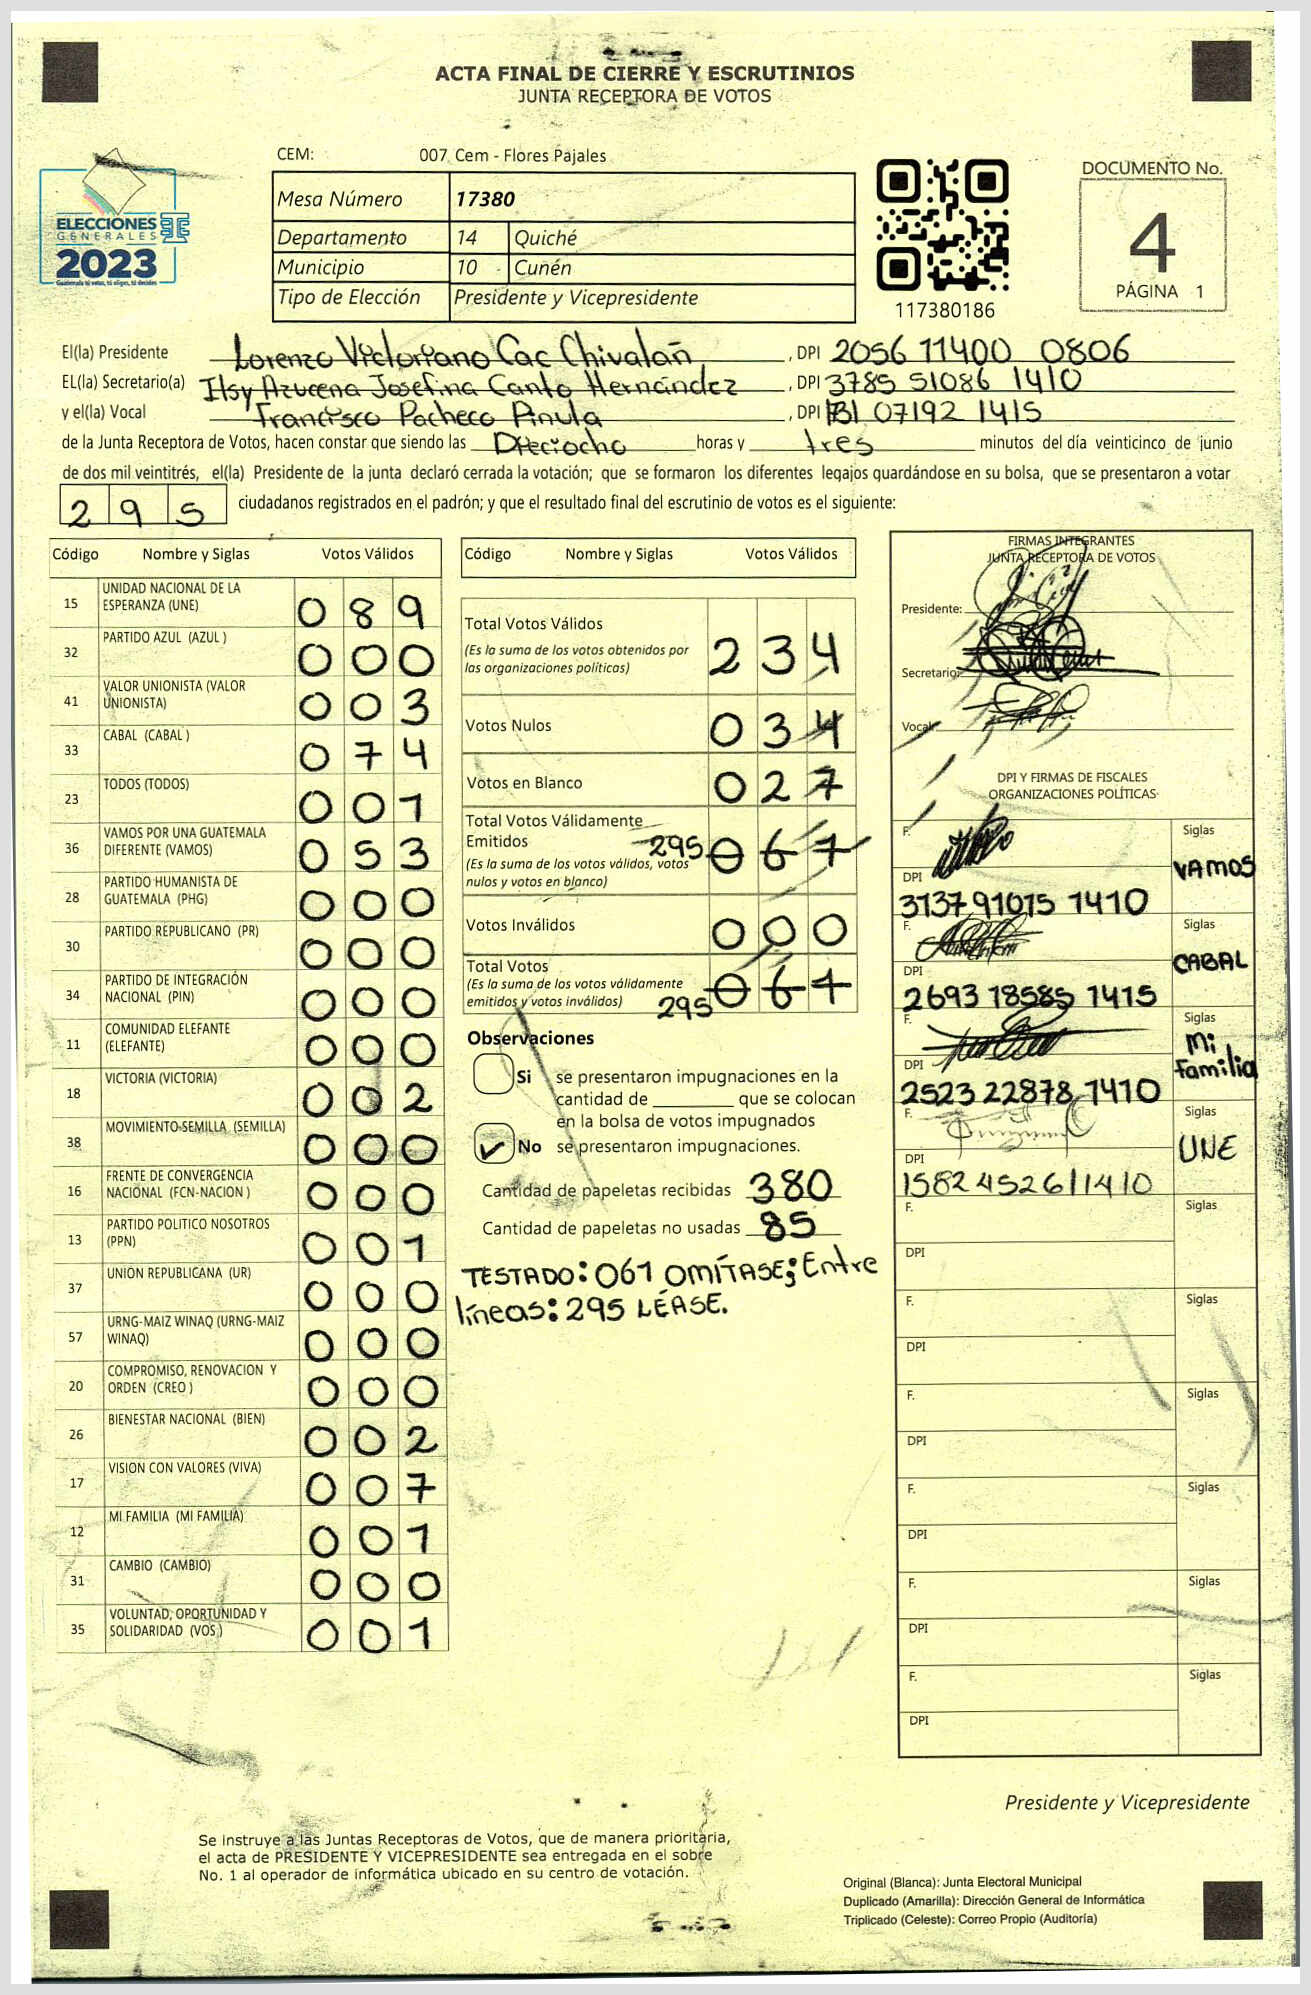 ACTA FINAL DE CIERRE Y ESCRUTINIOS
JUNTA RECEPTORA DE VOTOS
CEM: 007 Cem - Flores Pajales
ELECCIONES
GENERALES
2023
Guatemala tú votas, tú eliges, tú decides
Mesa Número 17380
Departamento 14 Quiché
Municipio 10 Cunén
Tipo de Elección Presidente y Vicepresidente
117380186
DOCUMENTO No.
4
PÁGINA 1
El(la) Presidente Lorenzo Victoriano Cac Chivalan , DPI 2056 11400 0806
EL(la) Secretario(a) Ilsy Azucena Josefina Canto Hernández , DPI 3785 51086 1410
y el(la) Vocal Francisco Pacheco Pinula , DPI 07192 1415
de la Junta Receptora de Votos, hacen constar que siendo las Dieciocho horas y tres minutos del día veinticinco de junio
de dos mil veintitrés, el(la) Presidente de la junta declaró cerrada la votación; que se formaron los diferentes legajos quardándose en su bolsa, que se presentaron a votar
295 ciudadanos registrados en el padrón; y que el resultado final del escrutinio de votos es el siguiente:
Código Nombre y Siglas Votos Válidos
15 UNIDAD NACIONAL DE LA ESPERANZA (UNE) 089
32 PARTIDO AZUL (AZUL ) 000
41 VALOR UNIONISTA (VALOR UNIONISTA) 003
33 CABAL (CABAL ) 074
23 TODOS (TODOS) 001
36 VAMOS POR UNA GUATEMALA DIFERENTE (VAMOS) 053
28 PARTIDO HUMANISTA DE GUATEMALA (PHG) 000
30 PARTIDO REPUBLICANO (PR) 000
34 PARTIDO DE INTEGRACIÓN NACIONAL (PIN) 000
11 COMUNIDAD ELEFANTE (ELEFANTE) 000
18 VICTORIA (VICTORIA) 002
38 MOVIMIENTO SEMILLA (SEMILLA) 000
16 FRENTE DE CONVERGENCIA NACIONAL (FCN-NACION ) 000
13 PARTIDO POLITICO NOSOTROS (PPN) 001
37 UNION REPUBLICANA (UR) 000
57 URNG-MAIZ WINAQ (URNG-MAIZ WINAQ) 000
20 COMPROMISO, RENOVACION Y ORDEN (CREO ) 000
26 BIENESTAR NACIONAL (BIEN) 002
17 VISION CON VALORES (VIVA) 007
12 MI FAMILIA (MI FAMILIA) 001
31 CAMBIO (CAMBIO) 000
35 VOLUNTAD, OPORTUNIDAD Y SOLIDARIDAD (VOS ) 001
Código Nombre y Siglas Votos Válidos
Total Votos Válidos 234
(Es la suma de los votos obtenidos por
las organizaciones políticas)
Votos Nulos 034
Votos en Blanco 027
Total Votos Válidamente
Emitidos 295 067
(Es la suma de los votos válidos, votos
nulos y votos en blanco)
Votos Inválidos 000
Total Votos
(Es la suma de los votos válidamente
emitidos y votos inválidos) 295 061
Observaciones
Si se presentaron impugnaciones en la
cantidad de ________ que se colocan
en la bolsa de votos impugnados
No se presentaron impugnaciones.
Cantidad de papeletas recibidas 380
Cantidad de papeletas no usadas 85
TESTADO: 061 OMÍTASE; Entre
líneas: 295 LÉASE.
FIRMAS INTEGRANTES
JUNTA RECEPTORA DE VOTOS
Presidente:
Secretario:
Vocal:
DPI Y FIRMAS DE FISCALES
ORGANIZACIONES POLÍTICAS
F. Siglas
VAMOS
DPI
3137 91015 1410
F. Siglas
CABAL
DPI
2693 18585 1415
F. Siglas
Mi
familia
DPI
2523 22878 1410
F. Siglas
UNE
DPI
1582 45261 1410
F. Siglas
DPI
F. Siglas
DPI
F. Siglas
DPI
F. Siglas
DPI
F. Siglas
DPI
F. Siglas
DPI
Presidente y Vicepresidente
Se instruye a las Juntas Receptoras de Votos, que de manera prioritaria,
el acta de PRESIDENTE Y VICEPRESIDENTE sea entregada en el sobre
No. 1 al operador de informática ubicado en su centro de votación.
Original (Blanca): Junta Electoral Municipal
Duplicado (Amarilla): Dirección General de Informática
Triplicado (Celeste): Correo Propio (Auditoría)